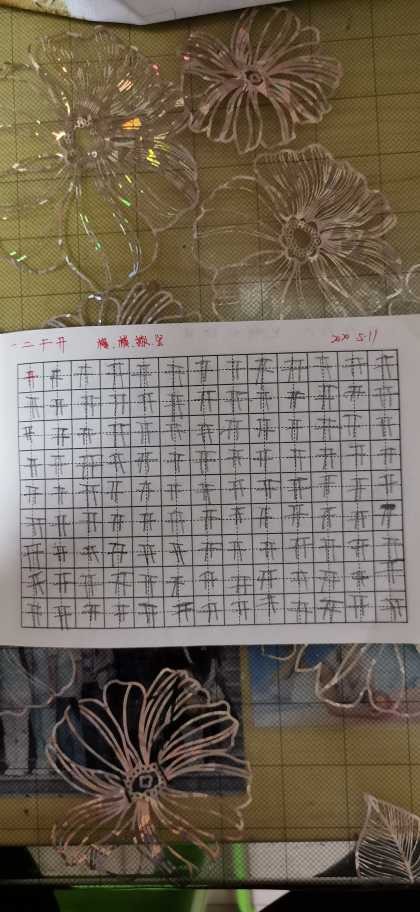 一 二 开 横.横.撇.竖 2020 5.11
开 开 开 开 开 开 开 开 开 开 开 开 开
开 开 开 开 开 开 开 开 开 开 开 开 开
开 开 开 开 开 开 开 开 开 开 开 开 开
开 开 开 开 开 开 开 开 开 开 开 开 开
开 开 开 开 开 开 开 开 开 开 开 开 开
开 开 开 开 开 开 开 开 开 开 开 开 开
开 开 开 开 开 开 开 开 开 开 开 开 开
开 开 开 开 开 开 开 开 开 开 开 开 开
开 开 开 开 开 开 开 开 开 开 开 开 开